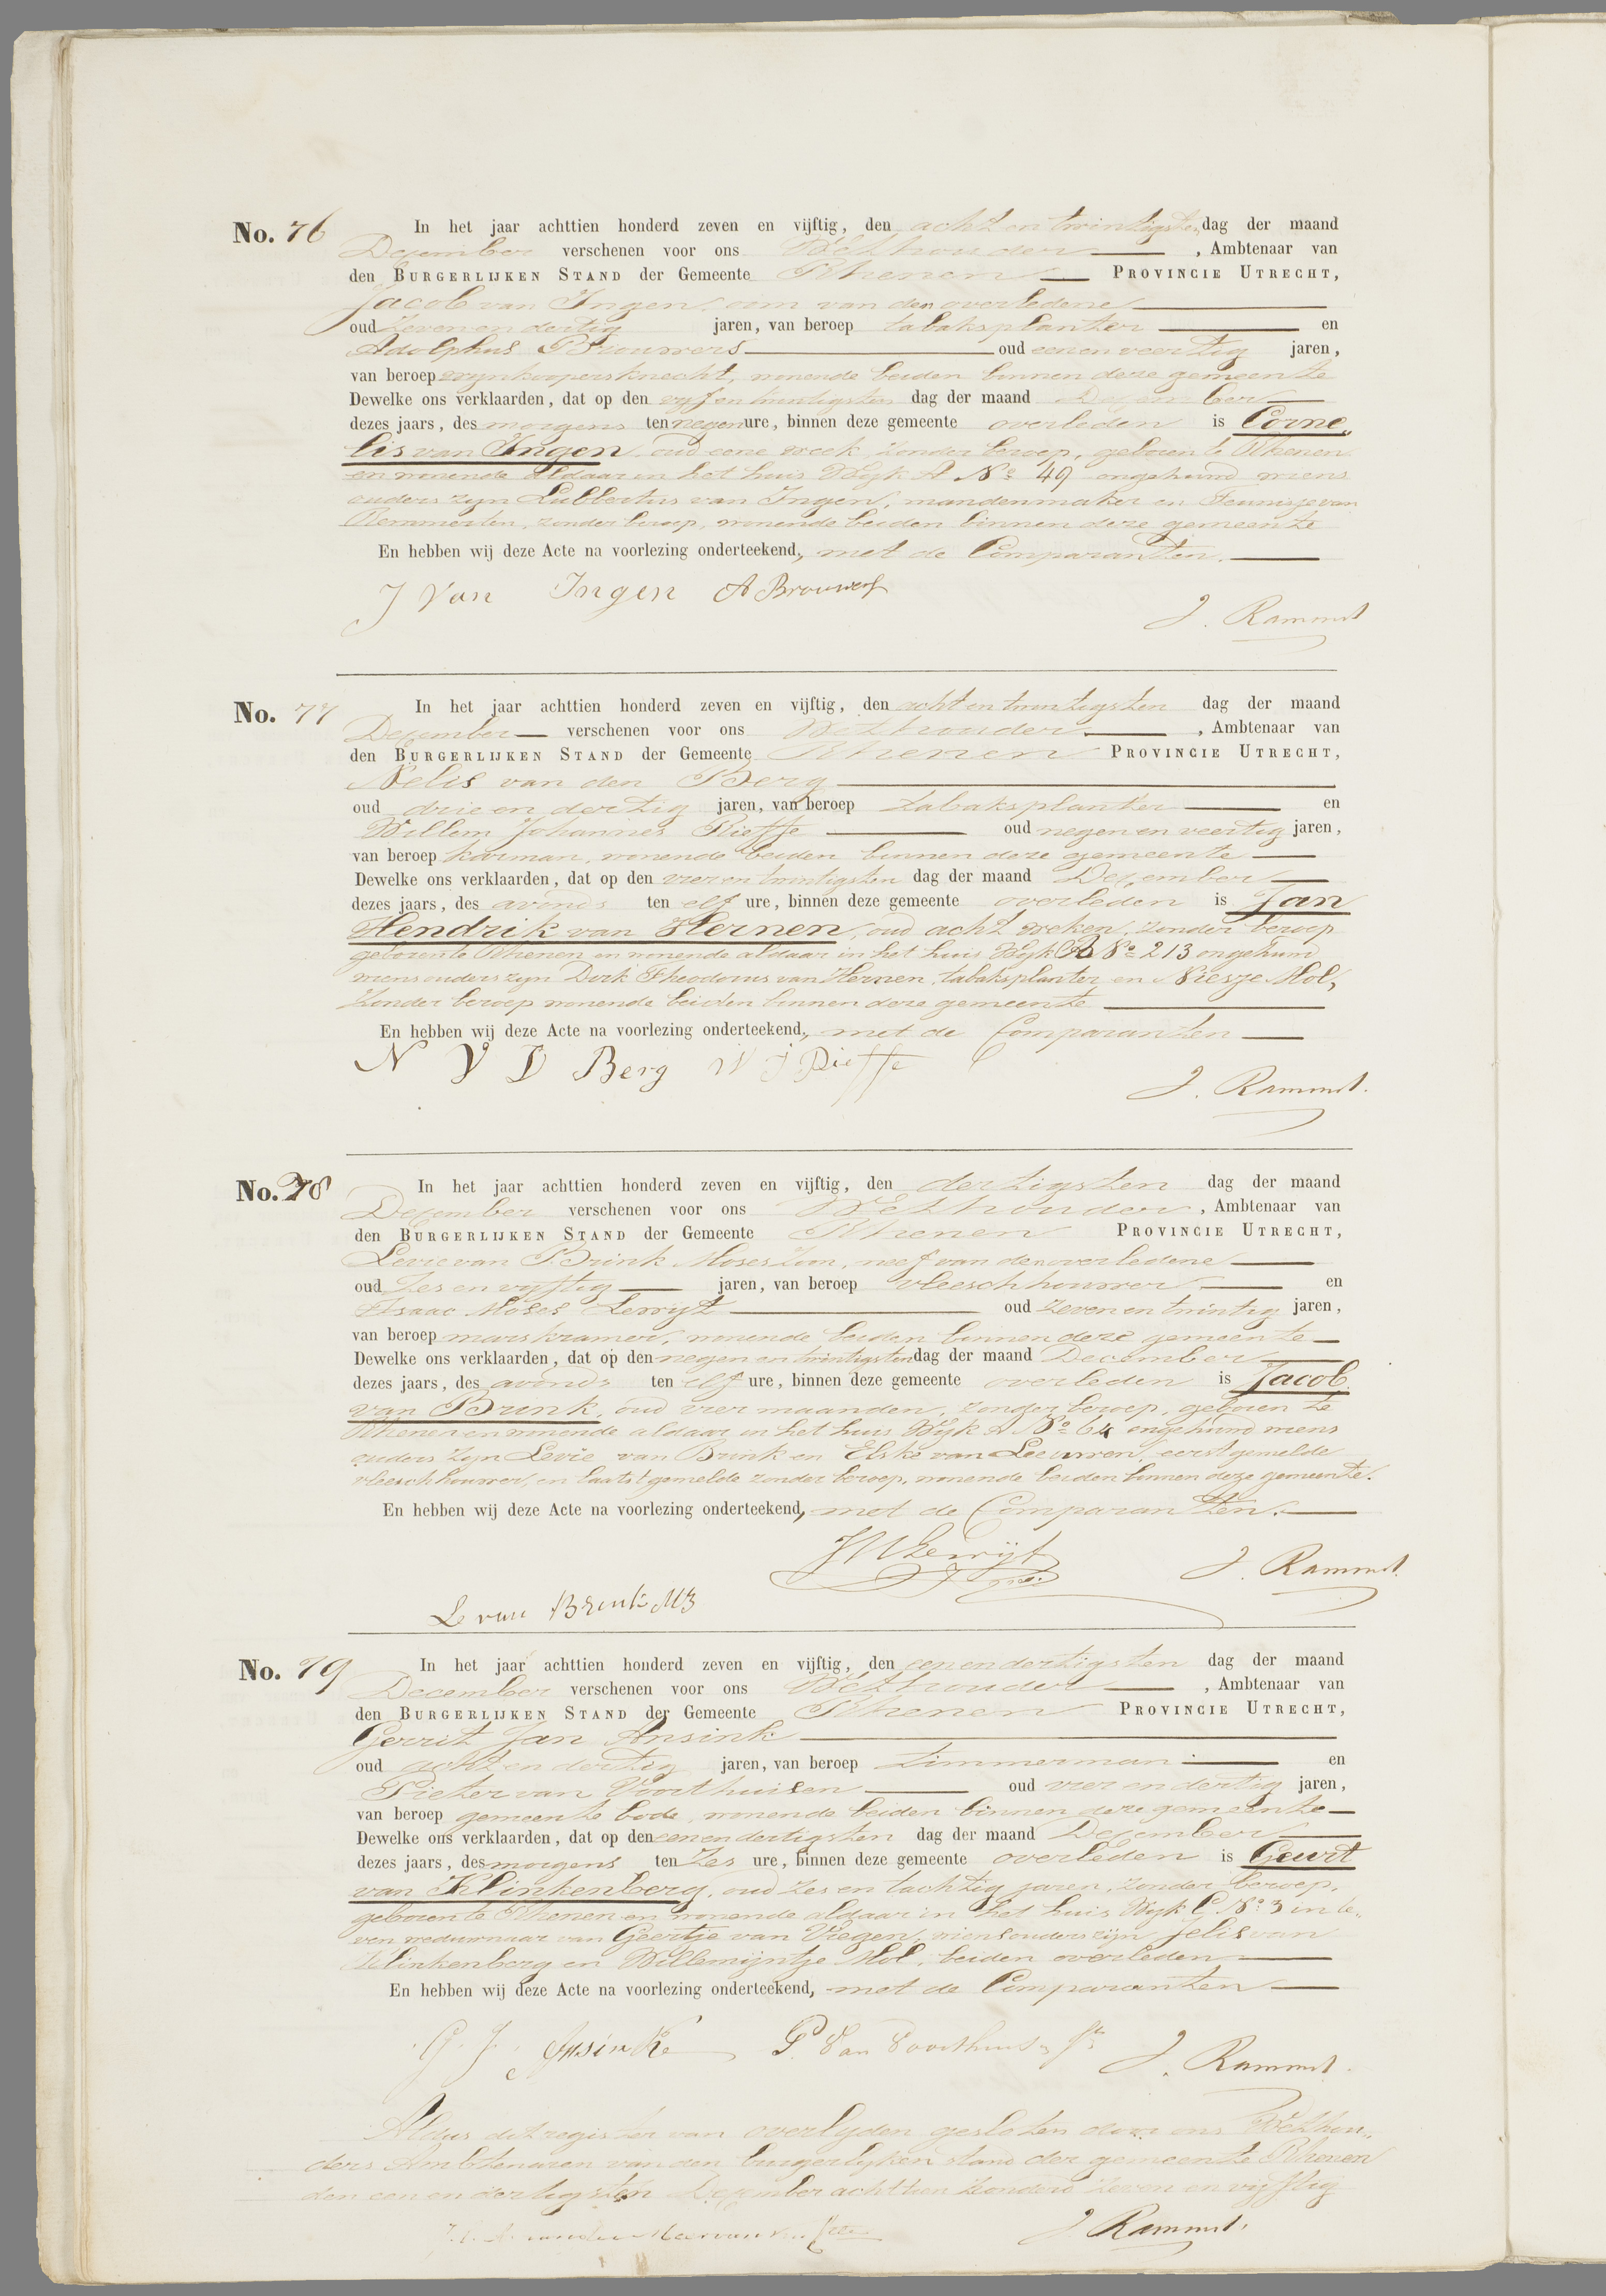 No. 76 In het jaar achttien honderd zeven en vijftig, den acht en twintigsten dag der maand
December verschenen voor ons Wethouder , Ambtenaar van
den Burgerlijken Stand der Gemeente Rhenen Provincie Utrecht,
Jacob van Ingen, oom van den overledene
oud zeven en dertig jaren, van beroep tabaksplanter en
Adolphus Brouwers oud een en veertig jaren,
van beroep wynkoopersknecht, wonende beiden binnen deze gemeente
Dewelke ons verklaarden, dat op den vyf en twintigsten dag der maand December
dezes jaars, des morgens ten negen ure, binnen deze gemeente overleden is Corne„
lis van Ingen, oud eene week, zonder beroep, geboren te Rhenen
en wonende aldaar in het huis Wyk A No 49 ongehuwd wiens
ouders zyn Lubbertus van Ingen, mandenmaker en Teunisje van
Remmerden, zonder beroep, wonende beiden binnen deze gemeente
En hebben wij deze Acte na voorlezing onderteekend, met de Comparanten.
J Van Ingen A Brouwers
J. Rammst
No. 77 In het jaar achttien honderd zeven en vijftig, den acht en twintigsten dag der maand
December verschenen voor ons Wethouder , Ambtenaar van
den Burgerlijken Stand der Gemeente Rhenen Provincie Utrecht,
Nelis van den Berg
oud drie en dertig jaren, van beroep tabaksplanter en
Willem Johannes Rieffe oud negen en veertig jaren,
van beroep karman, wonende beiden binnen deze gemeente
Dewelke ons verklaarden, dat op den vier en twintigsten dag der maand December
dezes jaars, des avonds ten elf ure, binnen deze gemeente overleden is Jan
Hendrik van Hernen, oud acht weken, zonder beroep
geboren te Rhenen en wonende aldaar in het huis Wyk B No 213 ongehuwd
wiens ouders zyn Dirk Theodorus van Hernen, tabaksplanter en Niesje Mol,
zonder beroep wonende beiden binnen deze gemeente
En hebben wij deze Acte na voorlezing onderteekend, met de Comparanten
N V D Berg W J Rieffe
J. Rammst.
No. 78 In het jaar achttien honderd zeven en vijftig, den dertigsten dag der maand
December verschenen voor ons Wethouder , Ambtenaar van
den Burgerlijken Stand der Gemeente Rhenen Provincie Utrecht,
Levie van Brink Moses Zoon, neef van den overledene
oud zes en vyftig jaren, van beroep vleeschhouwer en
Isaac Moses Lewyt oud zeven en twintig jaren,
van beroep marskramer, wonende beiden binnen deze gemeente
Dewelke ons verklaarden, dat op den negen en twintigsten dag der maand December
dezes jaars, des avonds ten elf ure, binnen deze gemeente overleden is Jacob
van Brink, oud vier maanden, zonder beroep, geboren te
Rhenen en wonende aldaar in het huis Wyk A No 64 ongehuwd wiens
ouders zyn Levie van Brink en Elske van Leeuwen, eerstgemelde
vleeschhouwer, en laatstgemelde zonder beroep, wonende beiden binnen deze gemeente.
En hebben wij deze Acte na voorlezing onderteekend, met de Comparanten.
Lewijt
J. Rammst.
L van Brink MZ
No. 79 In het jaar achttien honderd zeven en vijftig, den eenendertigsten dag der maand
December verschenen voor ons Wethouder , Ambtenaar van
den Burgerlijken Stand der Gemeente Rhenen Provincie Utrecht,
Gerrit Jan Ansink
oud acht en dertig jaren, van beroep timmerman en
Pieter van Voorthuisen oud vier en dertig jaren,
van beroep gemeente bode, wonende beiden binnen deze gemeente
Dewelke ons verklaarden, dat op den eenendertigsten dag der maand December
dezes jaars, des morgens ten zes ure, binnen deze gemeente overleden is Geurt
van Klinkenberg, oud zes en tachtig jaren, zonder beroep,
geboren te Rhenen en wonende aldaar in het huis Wyk C No 3 in le„
ven weduwnaar van Geertje van Viegen, wiens ouders zyn Jelis van
Klinkenberg en Willemijntje Mol, beiden overleden
En hebben wij deze Acte na voorlezing onderteekend, met de Comparanten
G. J. Ansink P. Van Voorthuisen
J. Rammst.
Aldus dit register van overlyden gesloten door ons Wethou„
ders Ambtenaren van den burgerlyken stand der gemeente Rhenen
den een en dertigsten December achttien honderd zeven en vyftig
J. Rammst.